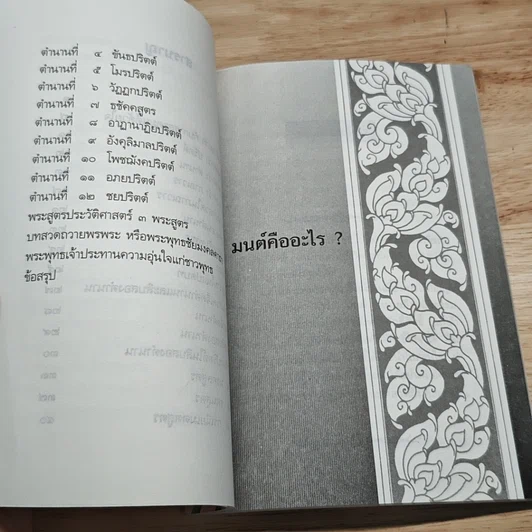 ตำนานที่ ๔ ขันธปริตต์
ตำนานที่ ๕ โมรปริตต์
ตำนานที่ ๖ วัฏฏกปริตต์
ตำนานที่ ๗ ธชัคคสูตร
ตำนานที่ ๘ อาฏานาฏิยปริตต์
ตำนานที่ ๙ อังคุลิมาลปริตต์
ตำนานที่ ๑๐ โพชฌังคปริตต์
ตำนานที่ ๑๑ อภยปริตต์
ตำนานที่ ๑๒ ชยปริตต์
พระสูตรประวัติศาสตร์ ๓ พระสูตร
บทสวดถวายพรพระ หรือพระพุทธชัยมงคลคาถา
พระพุทธเจ้าประทานความอุ่นใจแก่ชาวพุทธ
ข้อสรุป
มนต์คืออะไร ?